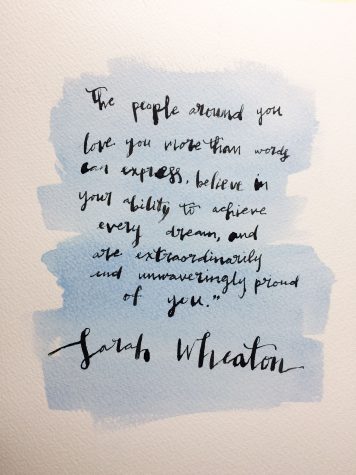 The people around you
love you more than words
can express, believe in
your ability to achieve
every dream, and
are extraordinarily
and unwaveringly proud
of you."
Sarah Wheaton